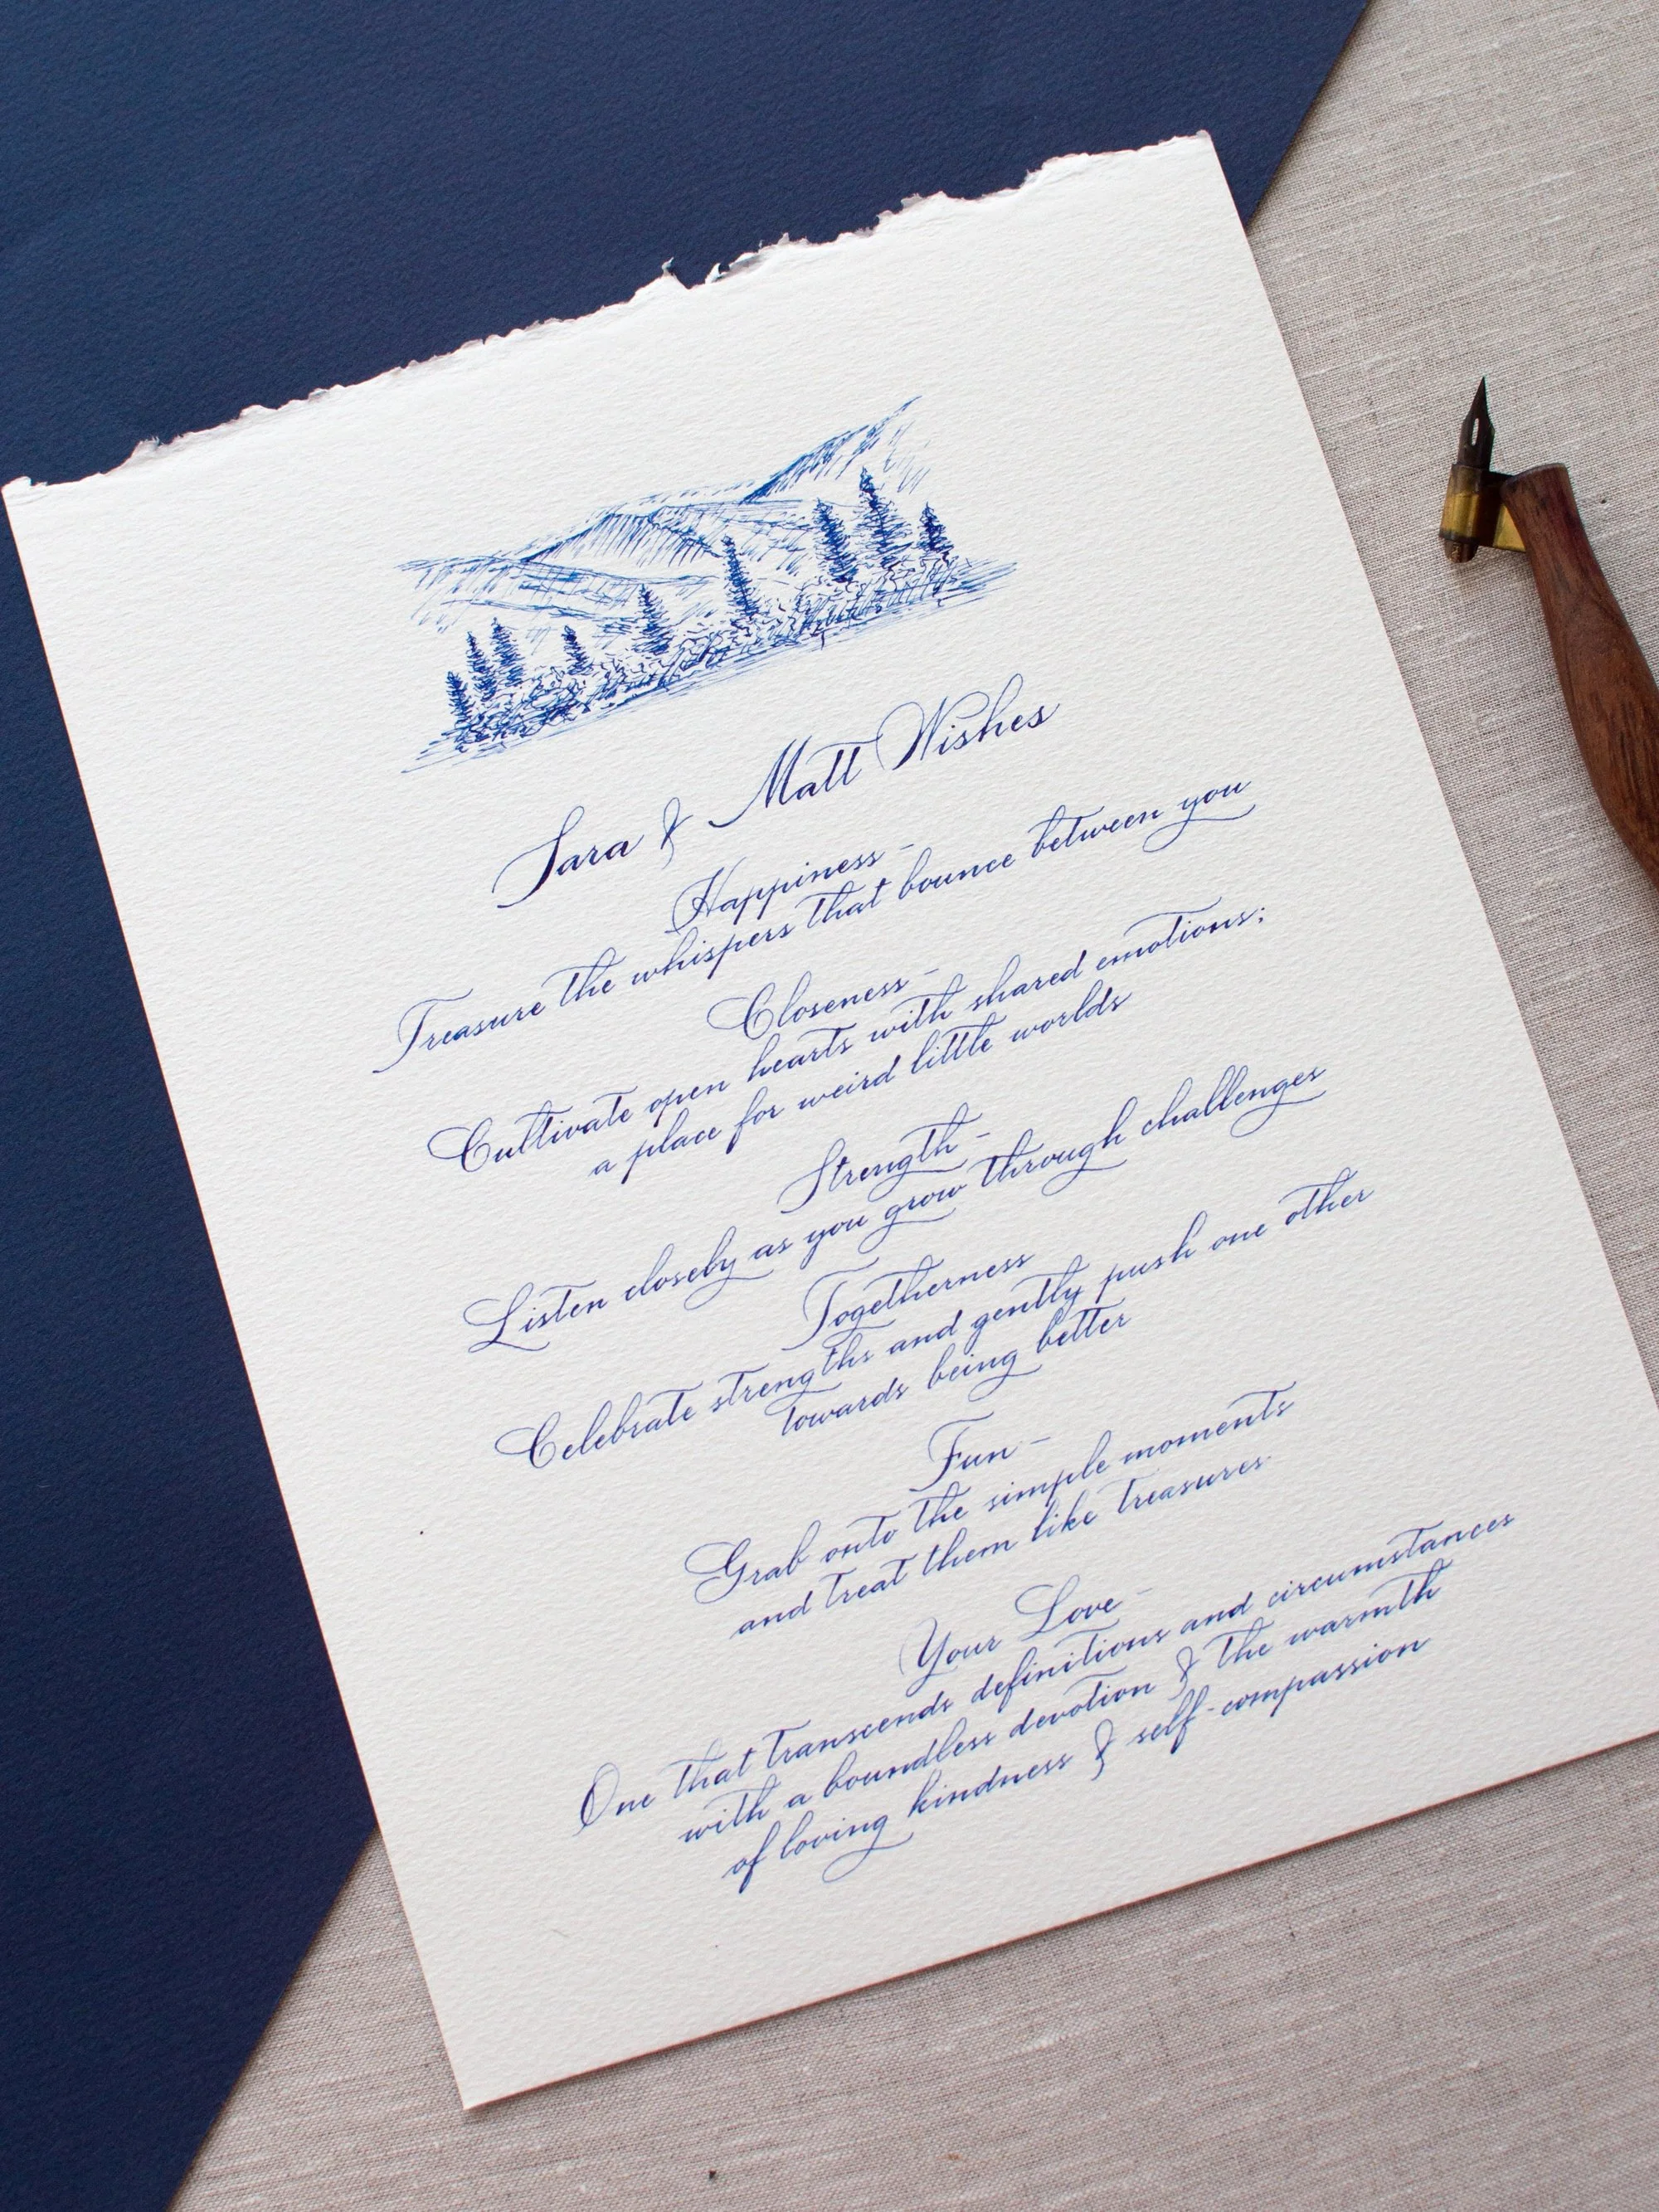 Sara & Matt Wishes
Happiness -
Treasure the whispers that bounce between you
Closeness -
Cultivate open hearts with shared emotions;
a place for weird little worlds
Strength -
Listen closely as you grow through challenges
Togetherness
Celebrate strengths and gently push one other
towards being better
Fun -
Grab onto the simple moments
and treat them like treasures
Your Love -
One that transcends definitions and circumstances
with a boundless devotion & the warmth
of loving kindness & self-compassion